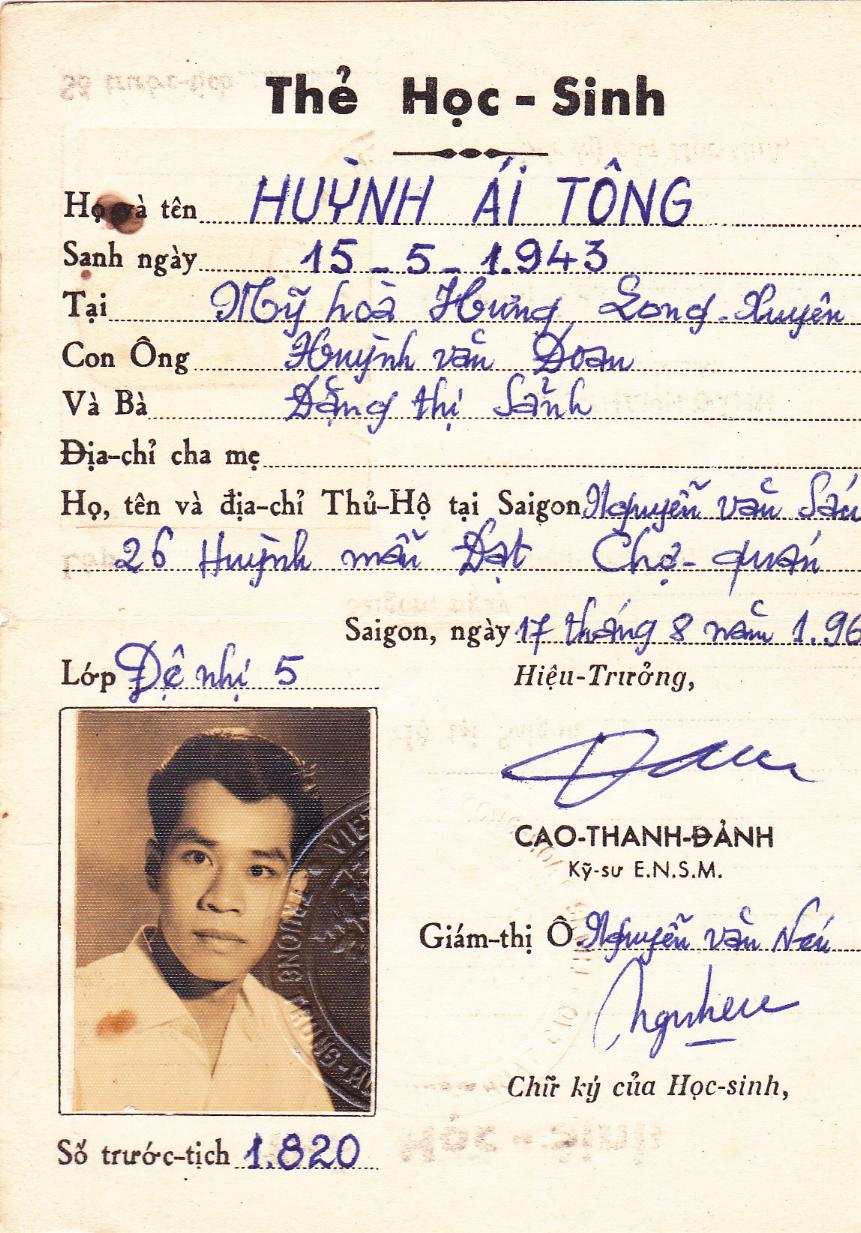 Thẻ Học - Sinh
Họ và tên HUỲNH ÁI TÔNG
Sanh ngày 15 - 5 - 1.943
Tại Mỹ hoà Hưng Long-Xuyên
Con Ông Huỳnh văn Đoan
Và Bà Đặng thị Sảnh
Địa-chỉ cha mẹ
Họ, tên và địa-chỉ Thủ-Hộ tại Saigon Nguyễn văn
26 Huỳnh mẫn Đạt Chợ-quán
Saigon, ngày 17 tháng 8 năm 1.96
Lớp Đệ nhị 5
Hiệu-Trưởng,
CAO-THANH-ĐẢNH
Kỹ-sư E.N.S.M.
Giám-thị Ô. Nguyễn văn
Chữ ký của Học-sinh,
Số trước-tịch 1.820